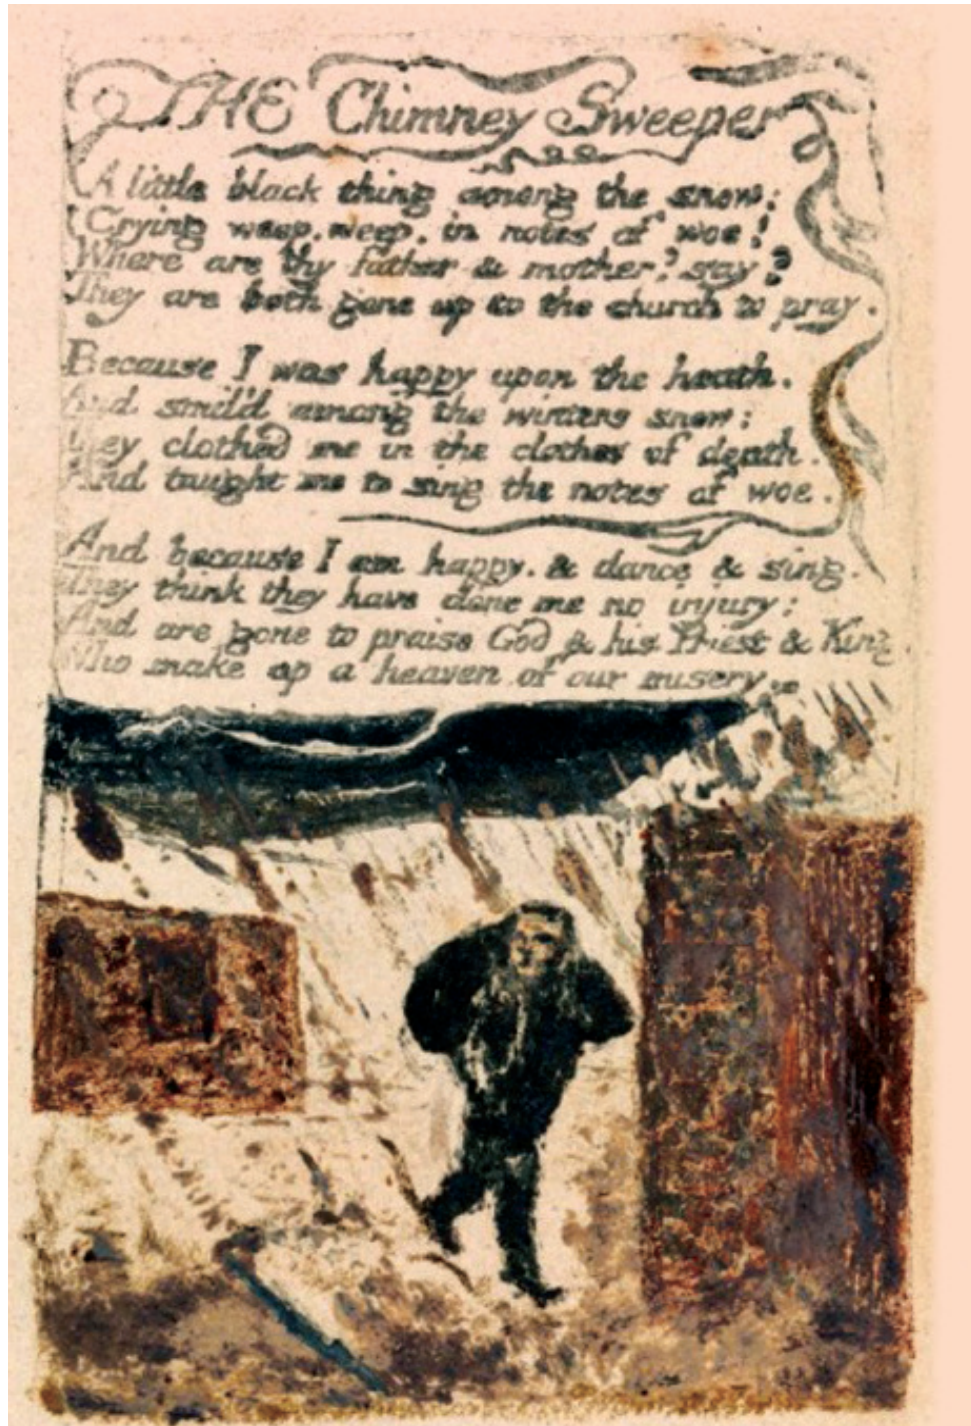 THE Chimney Sweeper
A little black thing among the snow:
Crying weep, weep, in notes of woe!
Where are thy father & mother? say?
They are both gone up to the church to pray.
Because I was happy upon the heath.
And smil'd among the winters snow:
They clothed me in the clothes of death.
And taught me to sing the notes of woe.
And because I am happy. & dance & sing.
They think they have done me no injury:
And are gone to praise God & his Priest & King
Who make up a heaven of our misery.